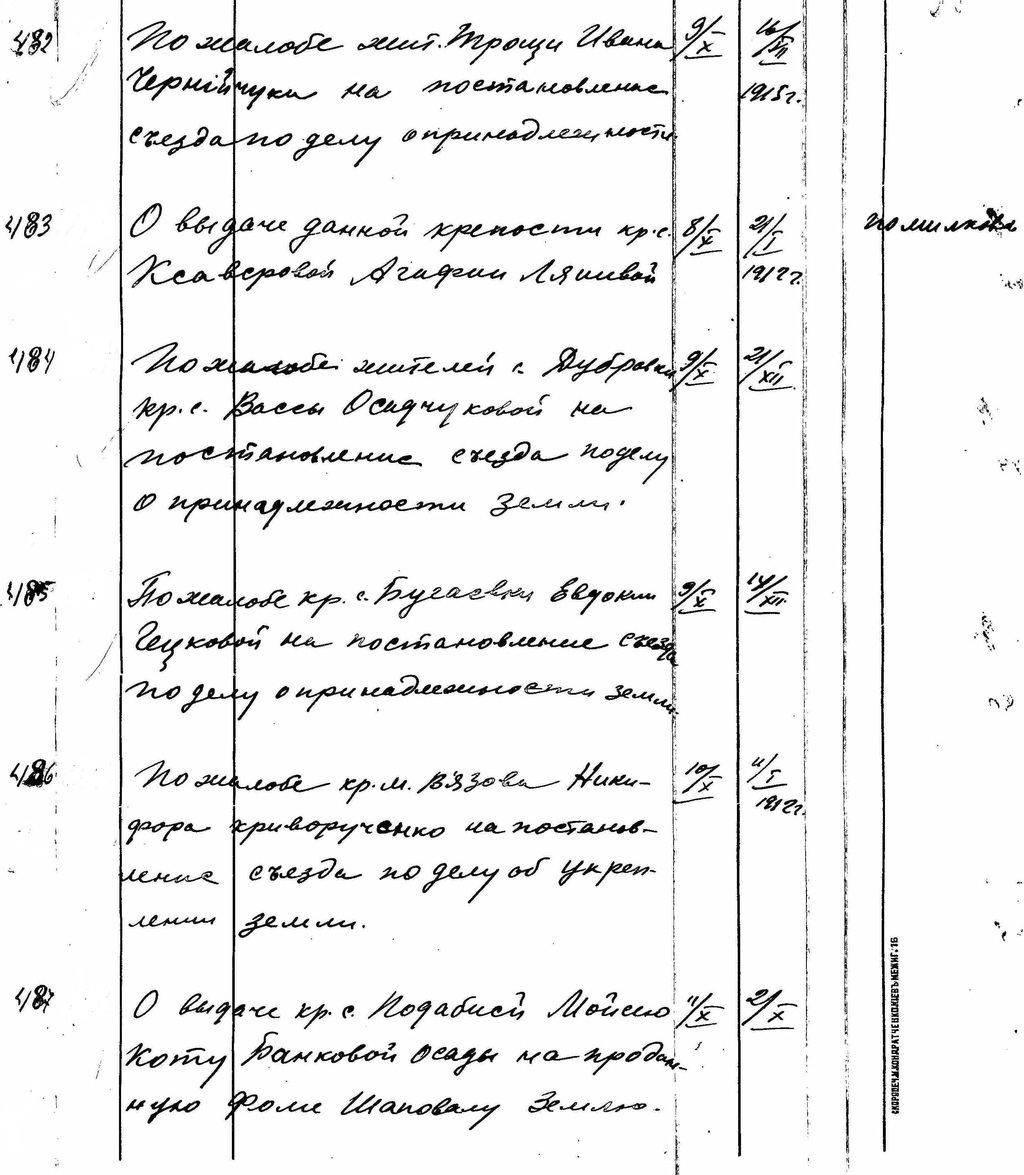 482 По жалобе жит. Трощи Ивана 9/X 16/XII
Чернійчука на постановление 1915г.
съезда по делу о принадлежности
483 О выдаче данной крепости кр. с. 8/X 21/I помилкова
Ксаверовой Агафии Ляшевой 1912г.
484 По жалобе жителей с. Дубровки 9/X 21/XII
кр. с. Вассы Осадчуковой на
постановление съезда по делу
о принадлежности земли.
485 По жалобе кр. с. Бугаевки Евдокии 9/X 14/XII
Гецковой на постановление съезда
по делу о принадлежности земли.
486 По жалобе кр. м. Вязова Ники- 10/X 11/I
фора Криворученко на постанов- 1912г.
ление съезда по делу об укреп-
лении земли.
487 О выдаче кр. с. Мойсею 11/X 2/X
Коту Банковой осады на продан-
ную Фоме Шаповалу землю.
СКОРОПЕЧ.М.КОНДРАТЧЕНКО.КІЕВЪ МЕЖИГ.16